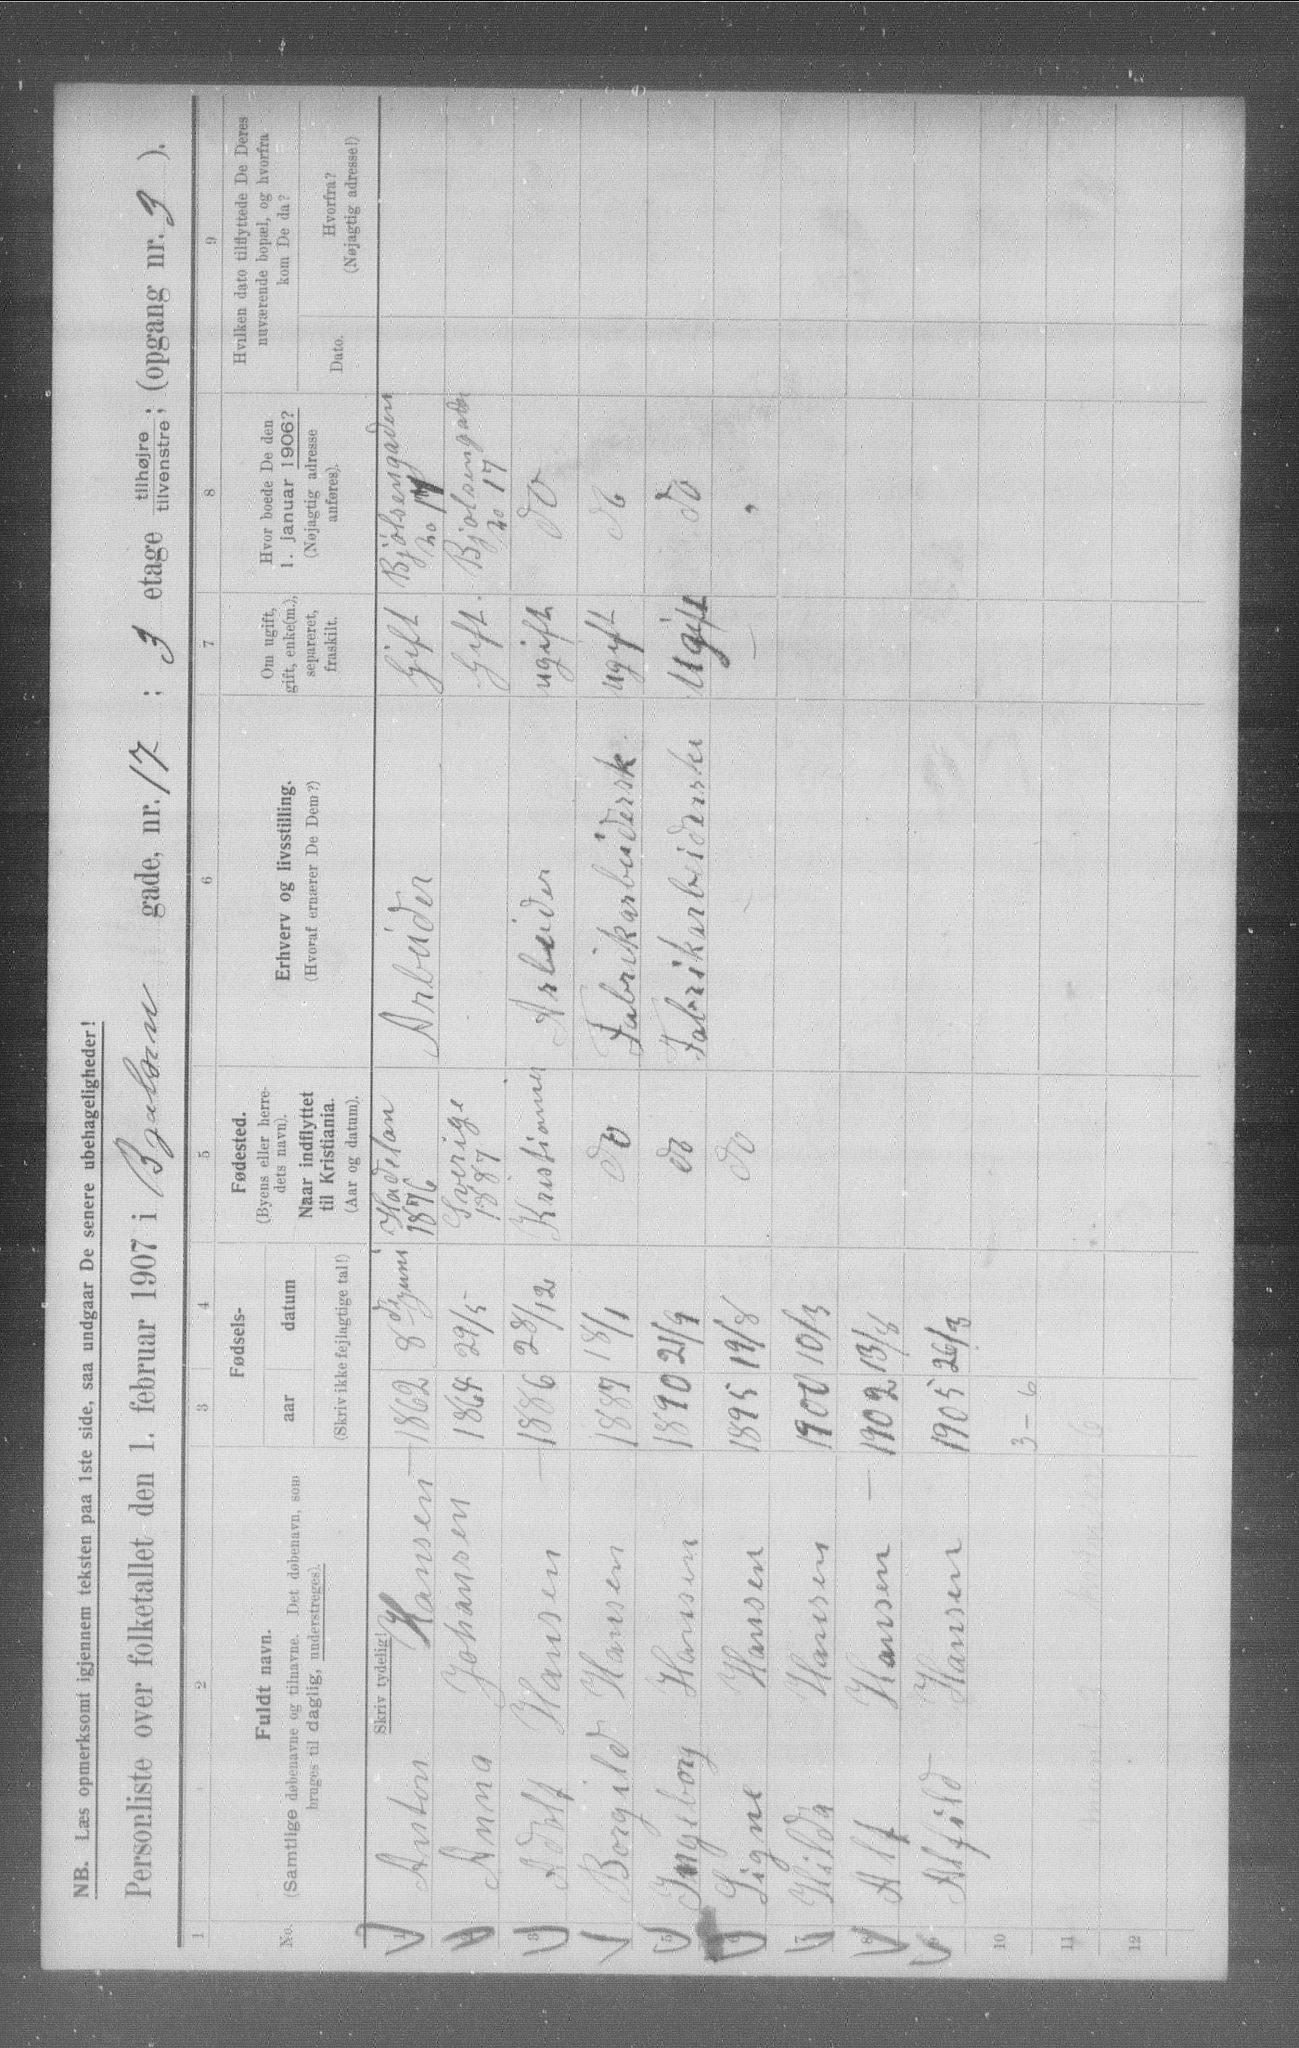 NB. Læs opmerksomt igjennem teksten paa 1ste side, saa undgaar De senere ubehageligheder!
Personliste over folketallet den 1. februar 1907 i Bjølsen gade, nr. 17 ; 3 etage tilhøjre tilvenstre; (opgang nr. 3 ).
1 2 3 4 5 6 7 8 9
No. Fuldt navn. (Samtlige døbenavne og tilnavne. Det døbenavn, som bruges til daglig, understreges).
Fødsels- aar datum (Skriv ikke fejlagtige tal!)
Fødested. (Byens eller herredets navn). Naar indflyttet til Kristiania. (Aar og datum).
Erhverv og livsstilling. (Hvoraf ernærer De Dem?)
Om ugift, gift, enke(m.), separeret, fraskilt.
Hvor boede De den 1. januar 1906? (Nøjagtig adresse anføres).
Hvilken dato tilflyttede De Deres nuværende bopæl, og hvorfra kom De da?
Dato. Hvorfra? (Nøjagtig adresse!)
Skriv tydelig!
1 Anton Hansen 1862 8de Juni Hadelan 1876 Arbeider Gift Bjølsengaden no 17
2 Anna Johansen 1864 29/5 Sverige 1887 Gift. Bjølsengaden no 17
3 Adolf Hansen 1886 28/12 Kristiania Arbeider ugift do
4 Borgild Hansen 1887 18/1 do Fabrikarbeidersk. ugift do
5 Ingeborg Hansen 1890 21/9 do Fabrikarbeiderske Ugift do
6 Signe Hansen 1895 19/8 do — "
7 Hilda Hansen 1900 10/3
8 Alf Hansen 1902 13/8
9 Alfild Hansen 1905 26/3
10 3-6
11
12